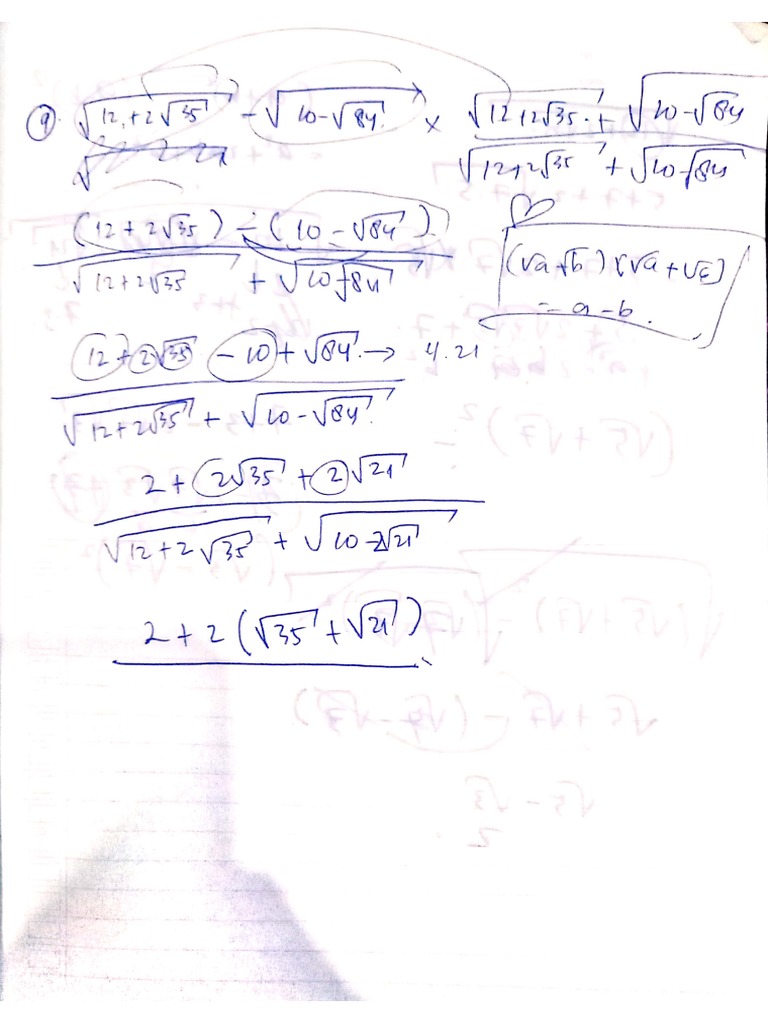 9. √(12+2√35) - √(10-√84) × (√(12+2√35) + √(10-√84)) / (√(12+2√35) + √(10-√84))
((12+2√35) - (10-√84)) / (√(12+2√35) + √(10-√84))
(√a+√b)(√a+√c) = a-b.
(12+2√35 -10+√84) / (√(12+2√35) + √(10-√84)) → 4.21
(2+2√35+2√21) / (√(12+2√35) + √(10-2√21))
2+2(√35+√21)